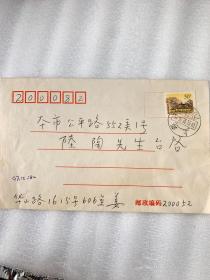 200082
50
本市公平路552弄1号
陆陶先生台启
华山路1615弄606室姜
邮政编码 200052